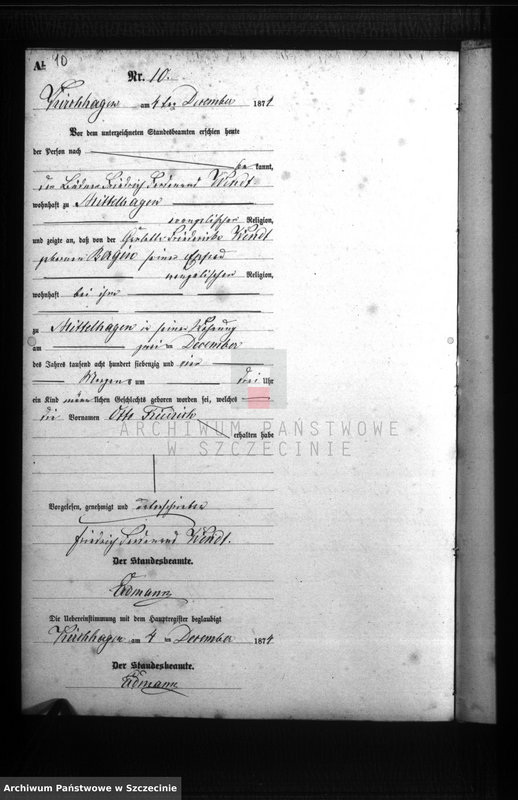 A.
10
Nr. 10.
Kirchhagen am 4 ten December 1874
Vor dem unterzeichneten Standesbeamten erschien heute
der Person nach
be kannt,
Friedrich Ferdinand Wendt
wohnhaft zu Mittelhagen
evangelischer Religion,
und zeigte an, daß von der Friederike Wendt
geborenen seiner Ehefrau
evangelischer Religion,
wohnhaft bei ihm
zu Mittelhagen in seiner Wohnung
am zwei ten December
des Jahres tausend acht hundert siebenzig und vier
Morgens um drei Uhr
ein Kind männ lichen Geschlechts geboren worden sei, welches
die Vornamen Otto Friedrich
erhalten habe
ARCHIWUM PAŃSTWOWE
W SZCZECINIE
Vorgelesen, genehmigt und unterschrieben
Friedrich Ferdinand Wendt.
Der Standesbeamte.
Erdmann
Die Uebereinstimmung mit dem Hauptregister beglaubigt
Kirchhagen am 4 ten December 1874
Der Standesbeamte.
Erdmann
Archiwum Państwowe w Szczecinie